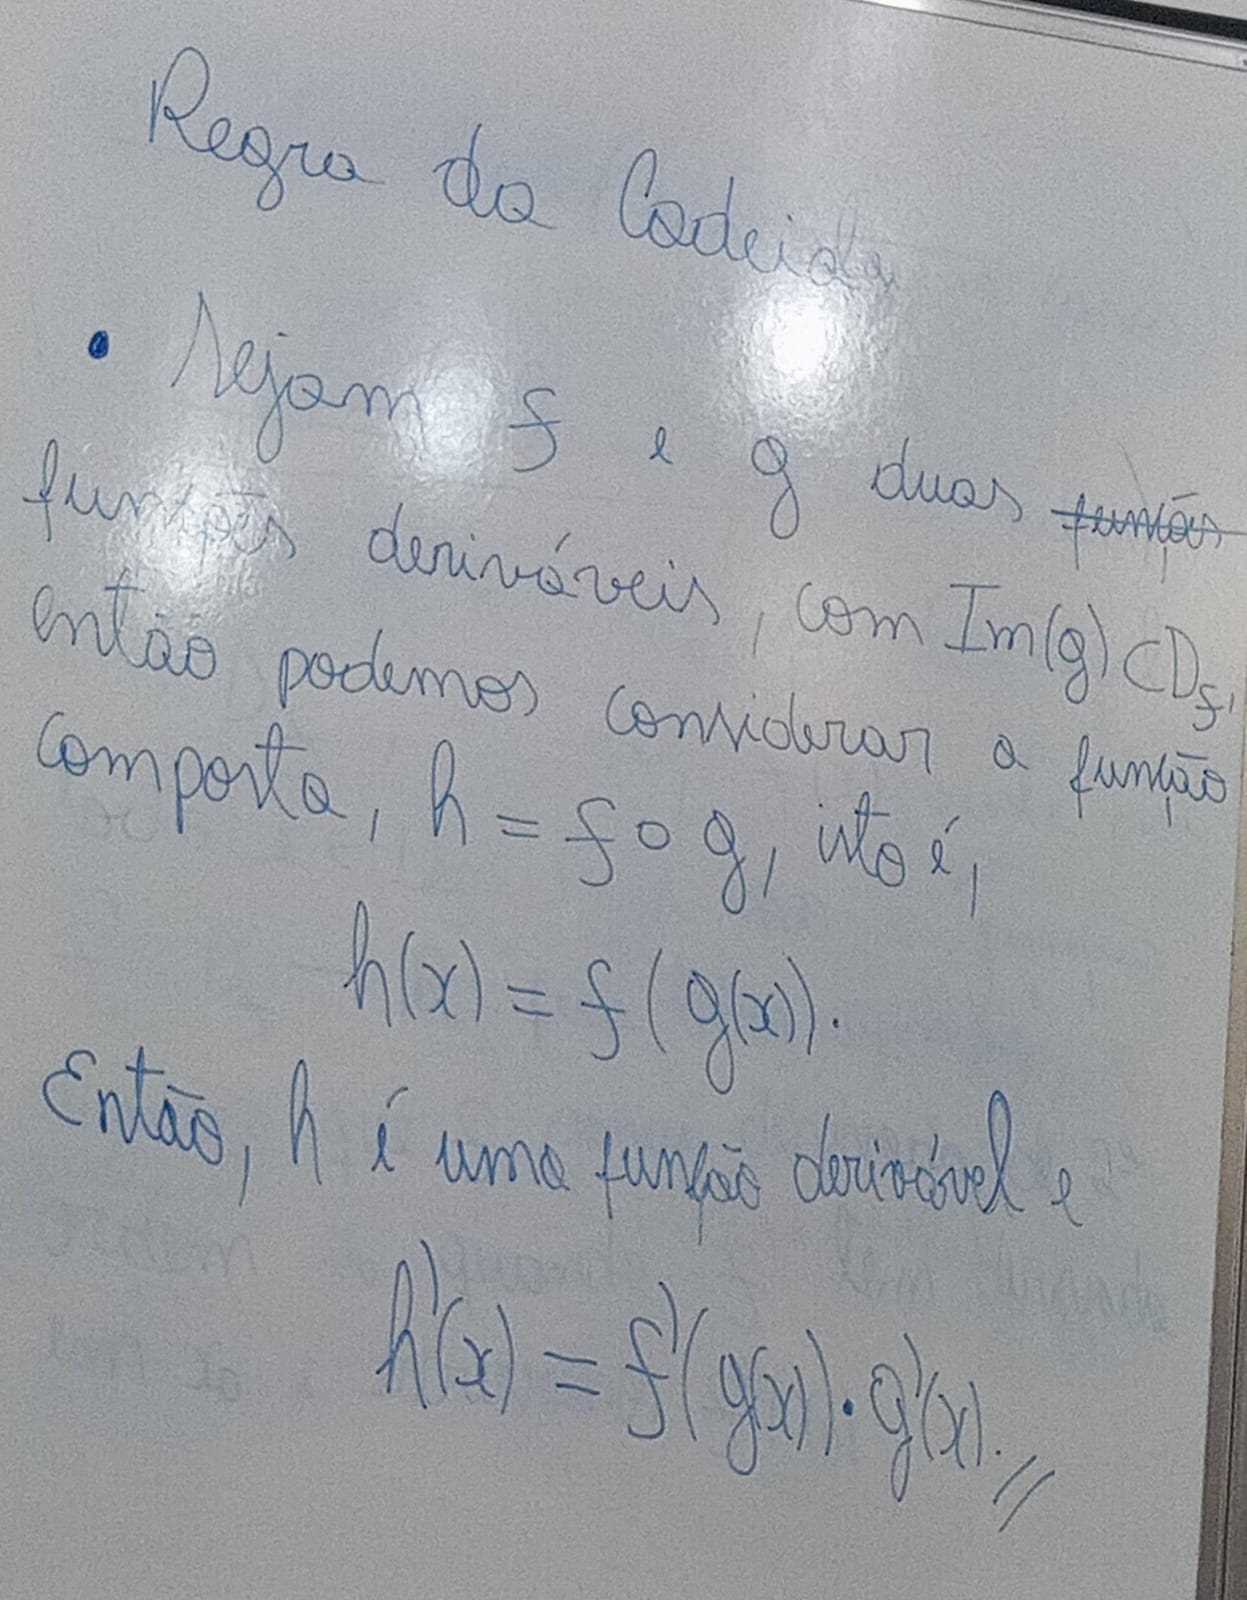 Regra da Cadeia
• Sejam f e g duas funções
funções deriváveis, com Im(g) ⊂ D_f,
então podemos considerar a função
composta, h = f ∘ g, isto é,
h(x) = f(g(x)).
Então, h é uma função derivável e
h'(x) = f'(g(x)) · g'(x). //